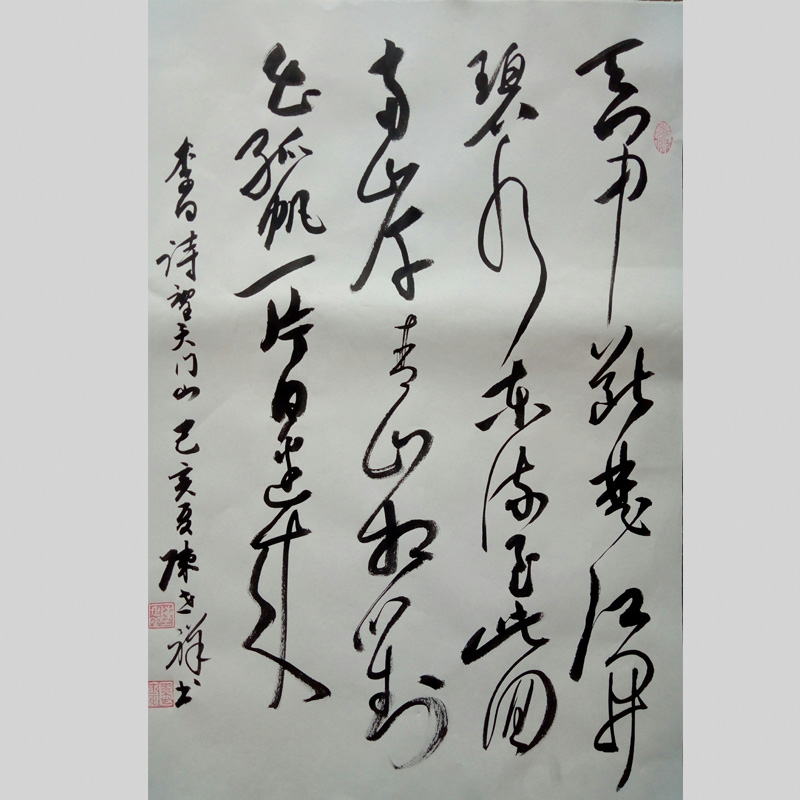 天门中断楚江开
碧水东流至此回
两岸青山相對
出孤帆一片日边来
李白诗望天门山 己亥夏陳世祥书